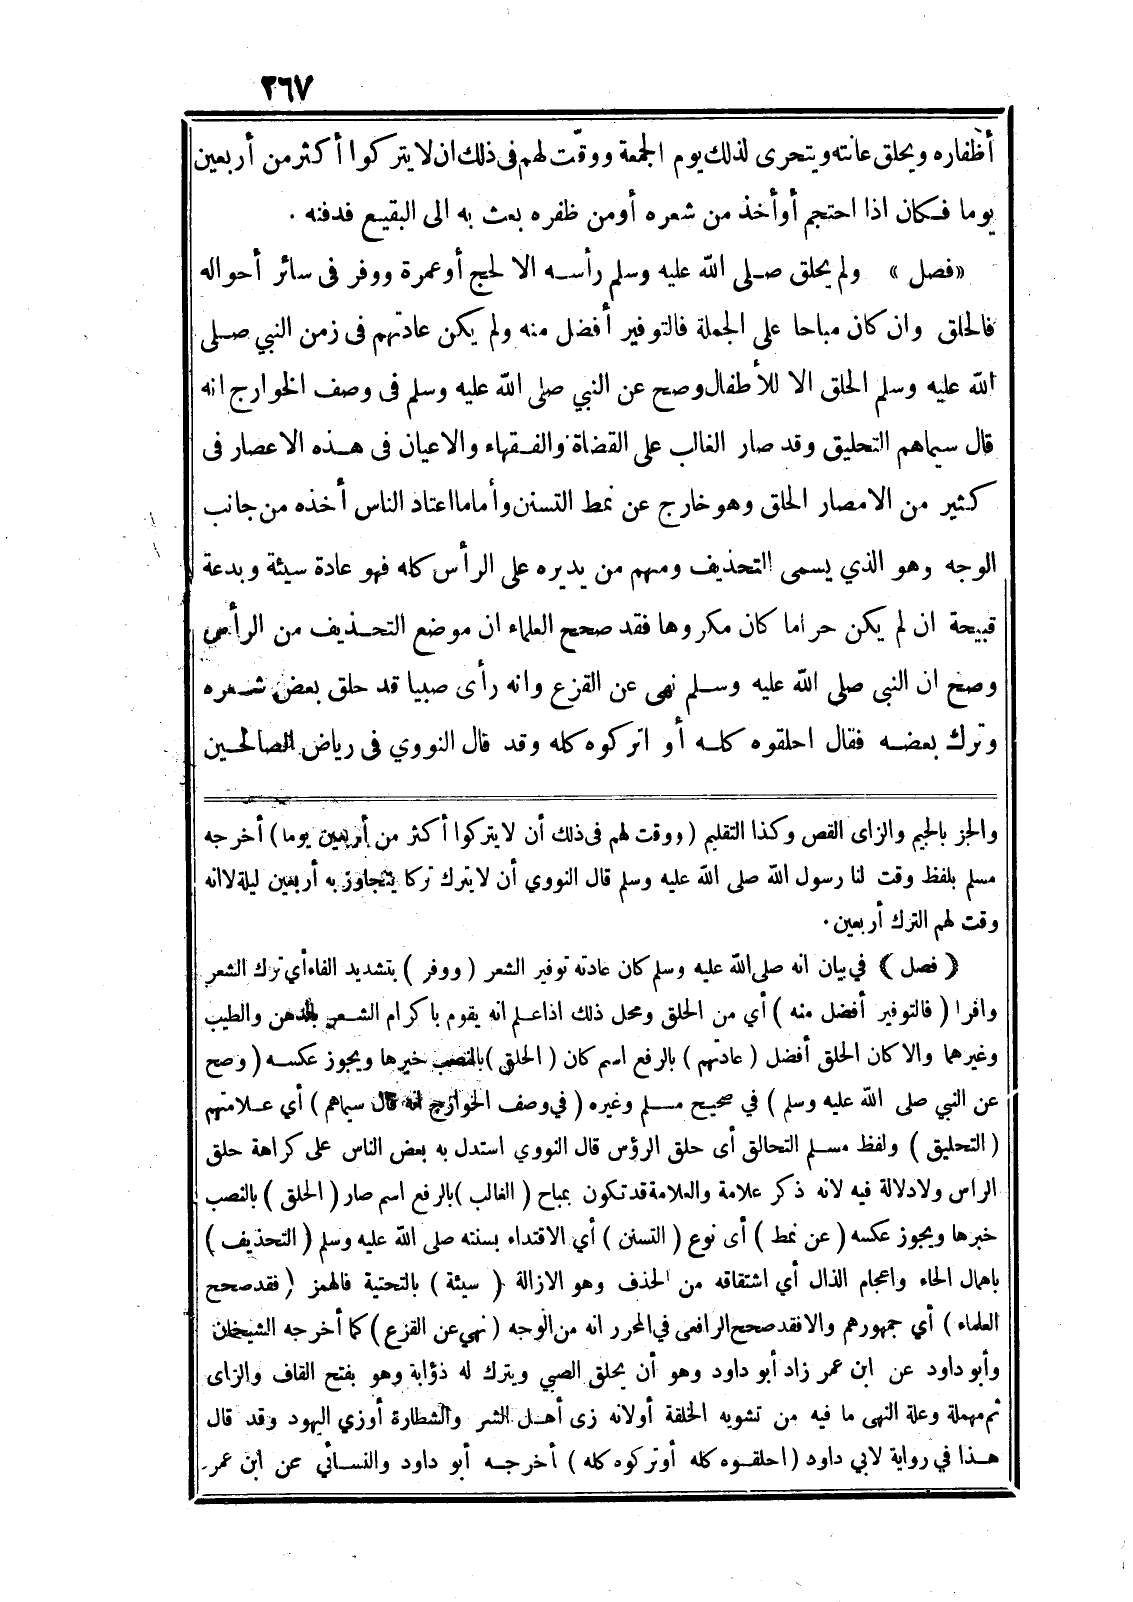 ٣٦٧
أظفاره ويحلق عانته ويتحرى لذلك يوم الجمعة ووقّت لهم فى ذلك ان لا يتركوا أكثر من أربعين
يوما فكان اذا احتجم أو أخذ من شعره أو من ظفره بعث به الى البقيع فدفنه .
«فصل» ولم يحلق صلى الله عليه وسلم رأسه الا لحج أو عمرة ووفر فى سائر أحواله
فالحلق وان كان مباحا على الجملة فالتوفير أفضل منه ولم يكن عادتهم فى زمن النبي صلى
الله عليه وسلم الحلق الا للأطفال وصح عن النبي صلى الله عليه وسلم فى وصف الخوارج انه
قال سيماهم التحليق وقد صار الغالب على القضاة والفقهاء والاعيان فى هذه الاعصار فى
كثير من الامصار الحلق وهو خارج عن نمط التسنن وأما ما اعتاد الناس أخذه من جانب
الوجه وهو الذي يسمى التحذيف ومنهم من يديره على الرأس كله فهو عادة سيئة وبدعة
قبيحة ان لم يكن حراما كان مكروها فقد صحح العلماء ان موضع التحذيف من الرأس
وصح ان النبى صلى الله عليه وسلم نهى عن القزع وانه رأى صبيا قد حلق بعض شعره
وترك بعضه فقال احلقوه كله أو اتركوه كله وقد قال النووي فى رياض الصالحين
والجز بالجيم والزاى القص وكذا التقليم (ووقت لهم فى ذلك أن لا يتركوا أكثر من أربعين يوما) أخرجه
مسلم بلفظ وقت لنا رسول الله صلى الله عليه وسلم قال النووي أن لا يترك تركا يتجاوز به أربعين ليلة لا انه
وقت لهم الترك أربعين .
﴿فصل﴾ في بيان انه صلى الله عليه وسلم كان عادته توفير الشعر (ووفر) بتشديد الفاء أي ترك الشعر
وافرا (فالتوفير أفضل منه) أي من الحلق ومحل ذلك اذا علم انه يقوم باكرام الشعر بالدهن والطيب
وغيرهما والا كان الحلق أفضل (عادتهم) بالرفع اسم كان (الحلق) بالنصب خبرها ويجوز عكسه (وصح
عن النبي صلى الله عليه وسلم) في صحيح مسلم وغيره (في وصف الخوارج انه قال سيماهم) أي علامتهم
(التحليق) ولفظ مسلم التحالق أى حلق الرؤس قال النووي استدل به بعض الناس على كراهة حلق
الراس ولا دلالة فيه لانه ذكر علامة والعلامة قد تكون بمباح (الغالب) بالرفع اسم صار (الحلق) بالنصب
خبرها ويجوز عكسه (عن نمط) أى نوع (التسنن) أي الاقتداء بسنته صلى الله عليه وسلم (التحذيف)
باهمال الحاء واعجام الذال أي اشتقاقه من الحذف وهو الازالة (سيئة) بالتحتية فالهمز (فقد صحح
العلماء) أي جمهورهم والا فقد صحح الرافعى في المحرر انه من الوجه (نهي عن القزع) كما أخرجه الشيخان
وأبو داود عن ابن عمر زاد أبو داود وهو أن يحلق الصبي ويترك له ذؤابة وهو بفتح القاف والزاى
ثم مهملة وعلة النهى ما فيه من تشويه الخلقة أو لانه زى أهل الشر والشطارة أو زي اليهود وقد قال
هذا في رواية لابي داود (احلقوه كله أو تركوه كله) أخرجه أبو داود والنسائي عن ابن عمر